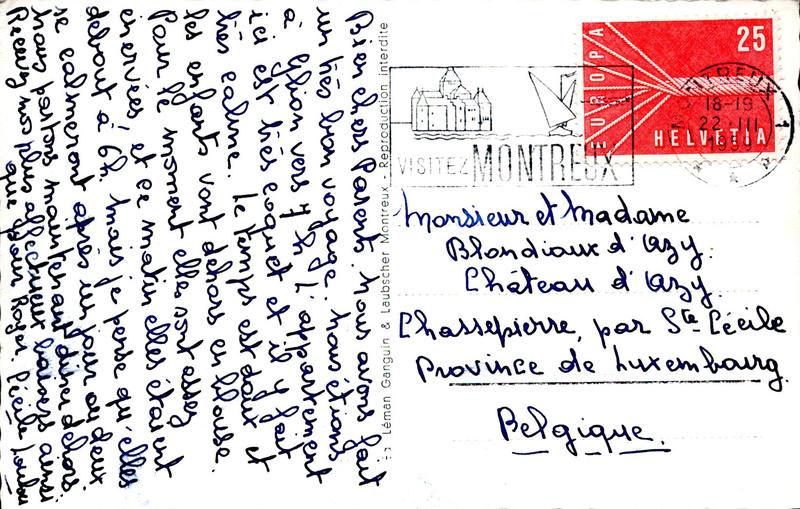 Bien chers Parents nous avons fait
un très bon voyage. nous étions
à Glion vers 7 h L'appartement
ici est très coquet et il y fait
très calme. Le temps est doux et
les enfants vont dehors en blouse.
Pour le moment elles sont assez
énervées et ce matin elles étaient
debout à 6h. mais je pense qu'elles
se calmeront après un jour ou deux
Nous partons maintenant dîner dehors
Recevez nos plus affectueux baisers ainsi
que pour Roger Cécile Loulou
Léman Ganguin & Laubscher Montreux - Reproduction interdite
VISITEZ MONTREUX
EUROPA
25
HELVETIA
MONTREUX
18-19
22.III
1959
1
Monsieur et Madame
Blondiaux d'Azy.
Château d'Azy.
Chassepierre, par Ste Cécile
Province de Luxembourg.
Belgique.